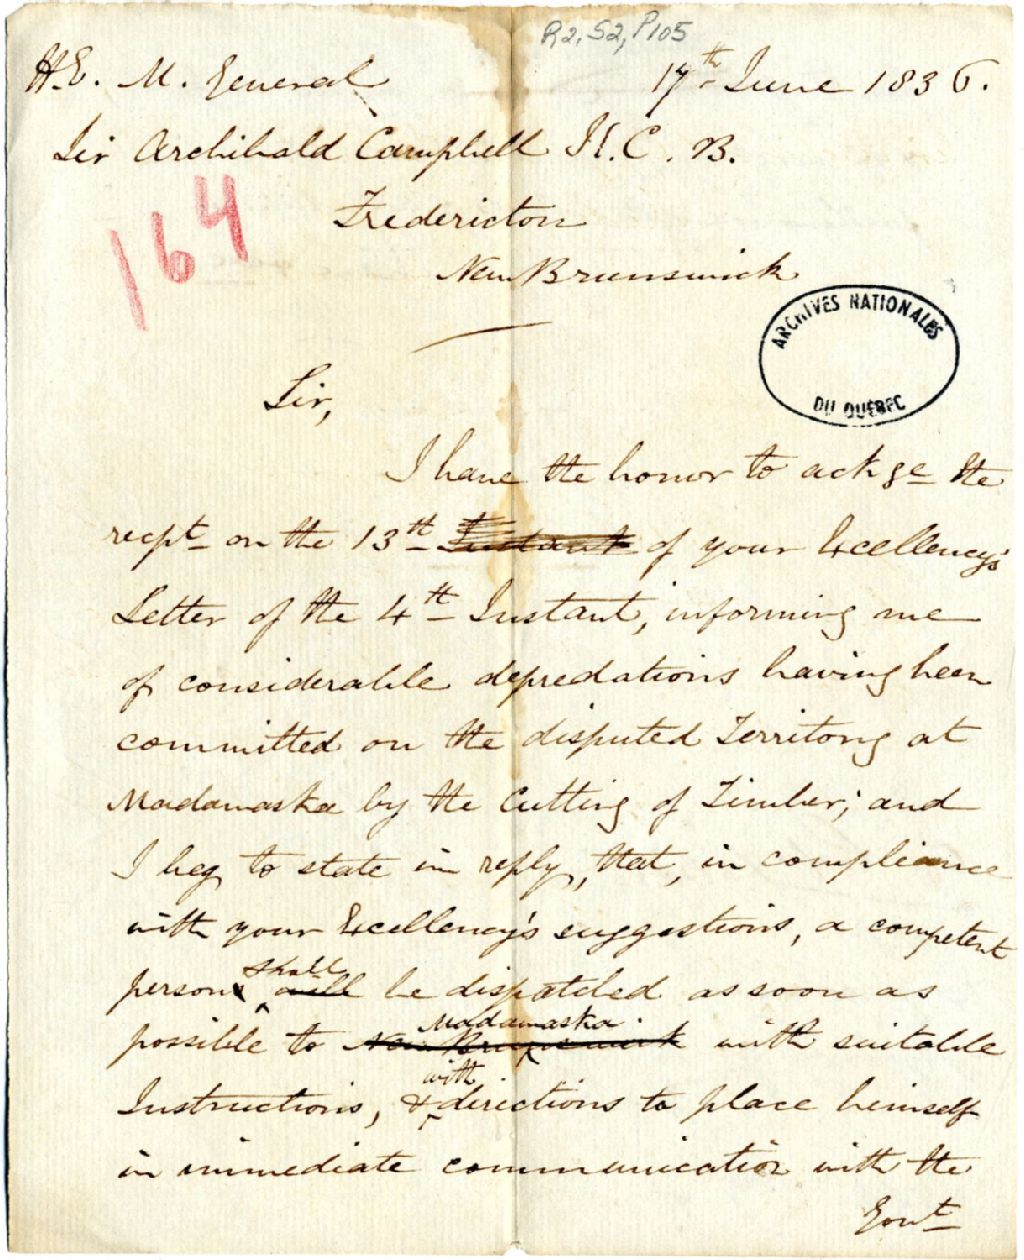 R2, S2, P105
H.E. M. General
17th June 1836.
Sir Archibald Campbell K.C.B.
164
Fredericton
New Brunswick
ARCHIVES NATIONALES
DU QUÉBEC
Sir,
I have the honor to ackge the
recpt on the 13th Instant of your Excellency's
Letter of the 4th Instant, informing me
of considerable depredations having been
committed on the disputed Territory at
Madawaska by the Cutting of Timber; and
I beg to state in reply, that, in compliance
with your Excellency's suggestions, a competent
shall
person will be dispatched as soon as
Madawaska
possible to New Brunswick with suitable
with
Instructions, & directions to place himself
in immediate communication with the
Govt